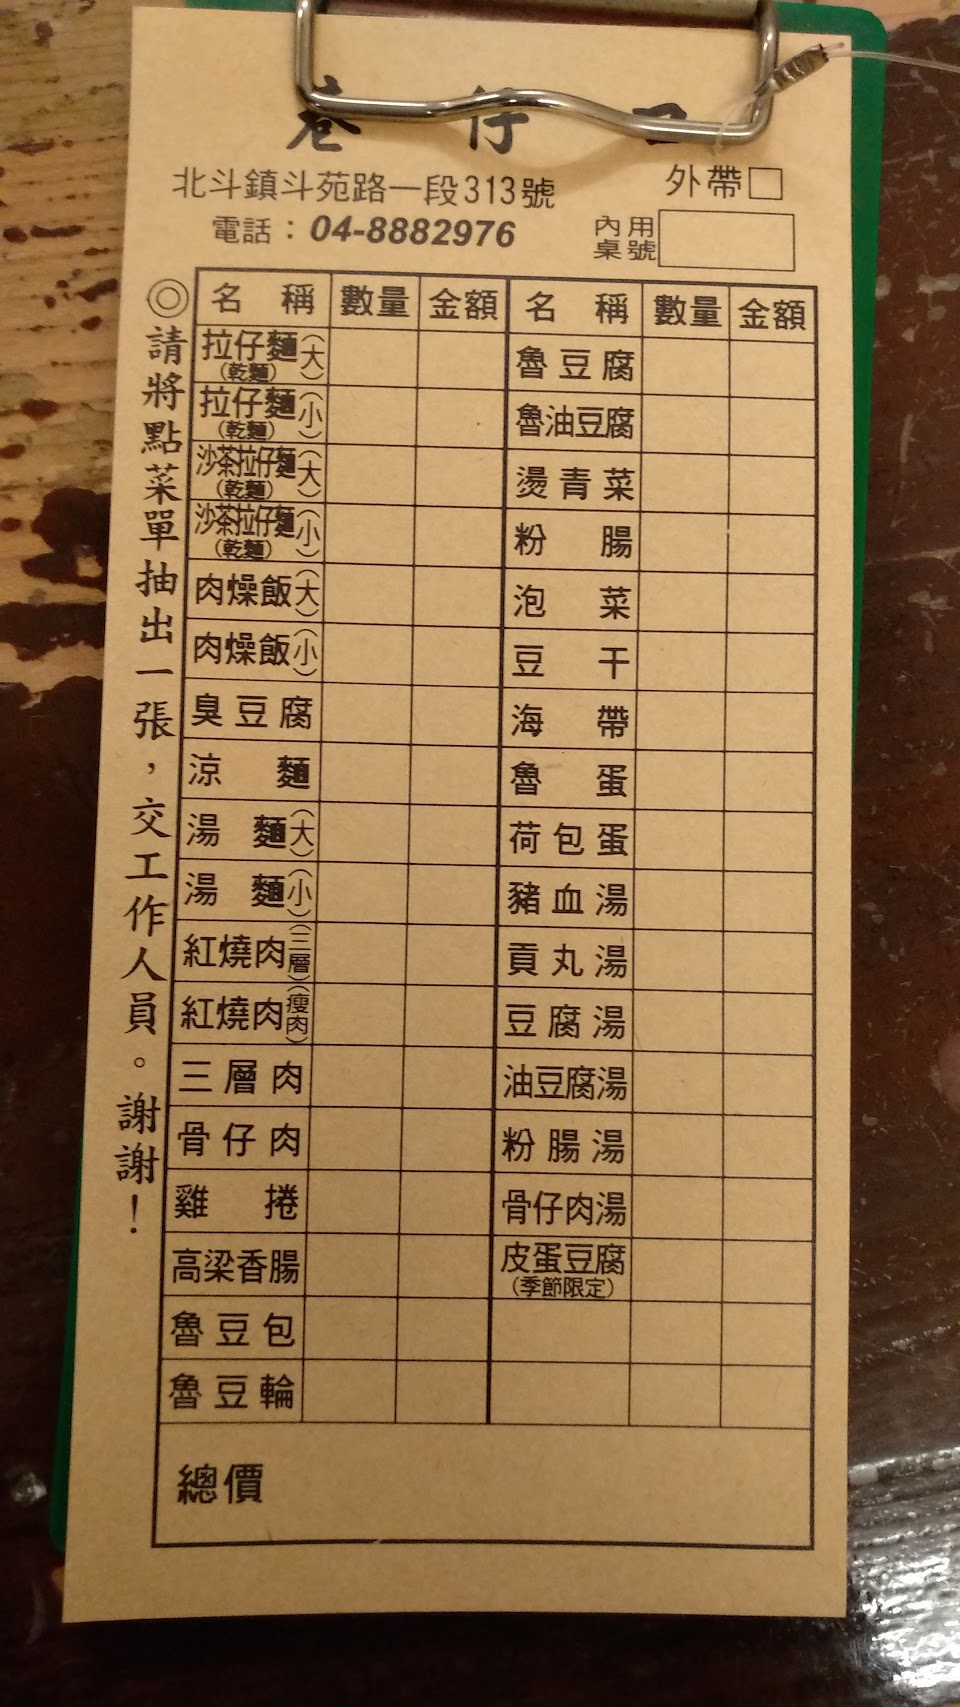 巷仔口
北斗鎮斗苑路一段313號
外帶□
電話：04-8882976
內用桌號
◎請將點菜單抽出一張，交工作人員。謝謝！
名稱 數量 金額 名稱 數量 金額
拉仔麵(乾麵)(大) 魯豆腐
拉仔麵(乾麵)(小) 魯油豆腐
沙茶拉仔麵(乾麵)(大) 燙青菜
沙茶拉仔麵(乾麵)(小) 粉腸
肉燥飯(大) 泡菜
肉燥飯(小) 豆干
臭豆腐 海帶
涼麵 魯蛋
湯麵(大) 荷包蛋
湯麵(小) 豬血湯
紅燒肉(三層) 貢丸湯
紅燒肉(瘦肉) 豆腐湯
三層肉 油豆腐湯
骨仔肉 粉腸湯
雞捲 骨仔肉湯
高梁香腸 皮蛋豆腐(季節限定)
魯豆包
魯豆輪
總價